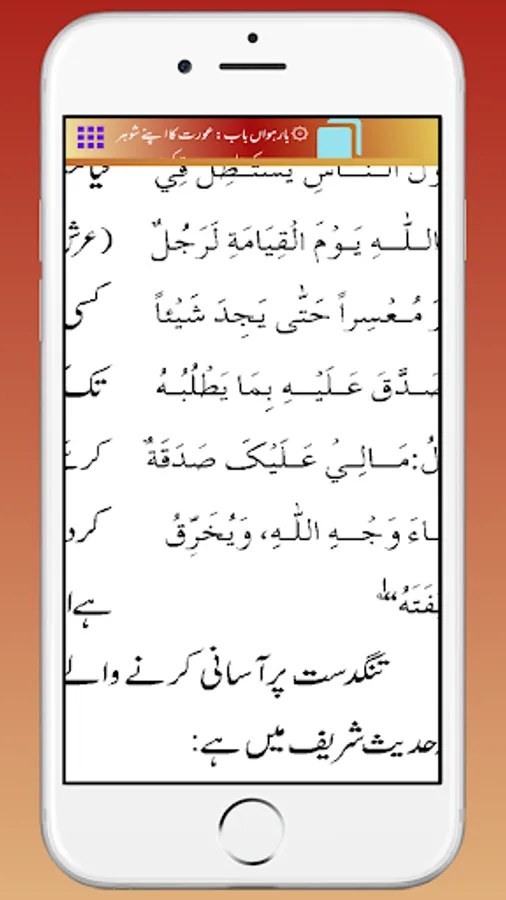 بارہواں باب : عورت کا اپنے شوہر
النَّاسِ يَسْتَظِلُّ فِي
اللّٰهِ يَوْمَ الْقِيَامَةِ لَرَجُلٌ (عرش
مُعْسِراً حَتّٰى يَجِدَ شَيْئاً کسی
عَلَيْهِ بِمَا يَطْلُبُهُ تک
مَالِيْ عَلَيْكَ صَدَقَةٌ
وَجْهِ اللّٰهِ، وَيُخَرِّقُ
تنگدست پر آسانی کرنے والے
حدیث شریف میں ہے: